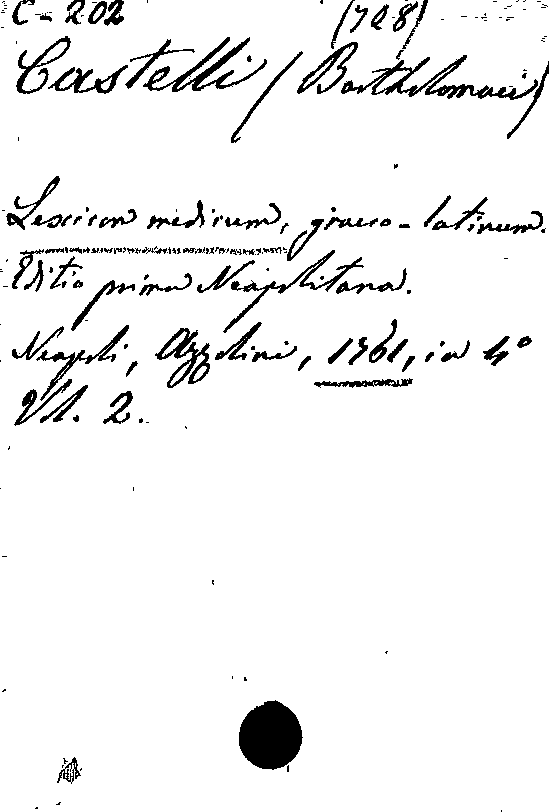 C - 202 (728)
Castelli (Bartholomaei)
Lexicon medicum, graeco-latinum.
Editio prima Neapolitana.
Neapoli, Azzolini, 1761, in 4º
Vol. 2.